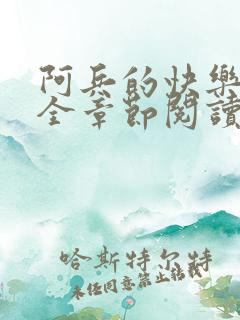 阿兵的快樂
全章節閱讀
哈斯特尔特
未经同意禁止转载